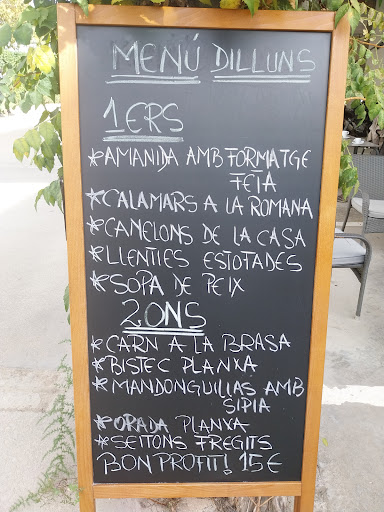 MENÚ DILLUNS
1ERS
*AMANIDA AMB FORMATGE
FETA
*CALAMARS A LA ROMANA
*CANELONS DE LA CASA
*LLENTIES ESTOFADES
*SOPA DE PEIX
2ONS
*CARN A LA BRASA
*BISTEC PLANXA
*MANDONGUILIAS AMB
SIPIA
*ORADA PLANXA
*SEITONS FREGITS
BON PROFIT! 15€